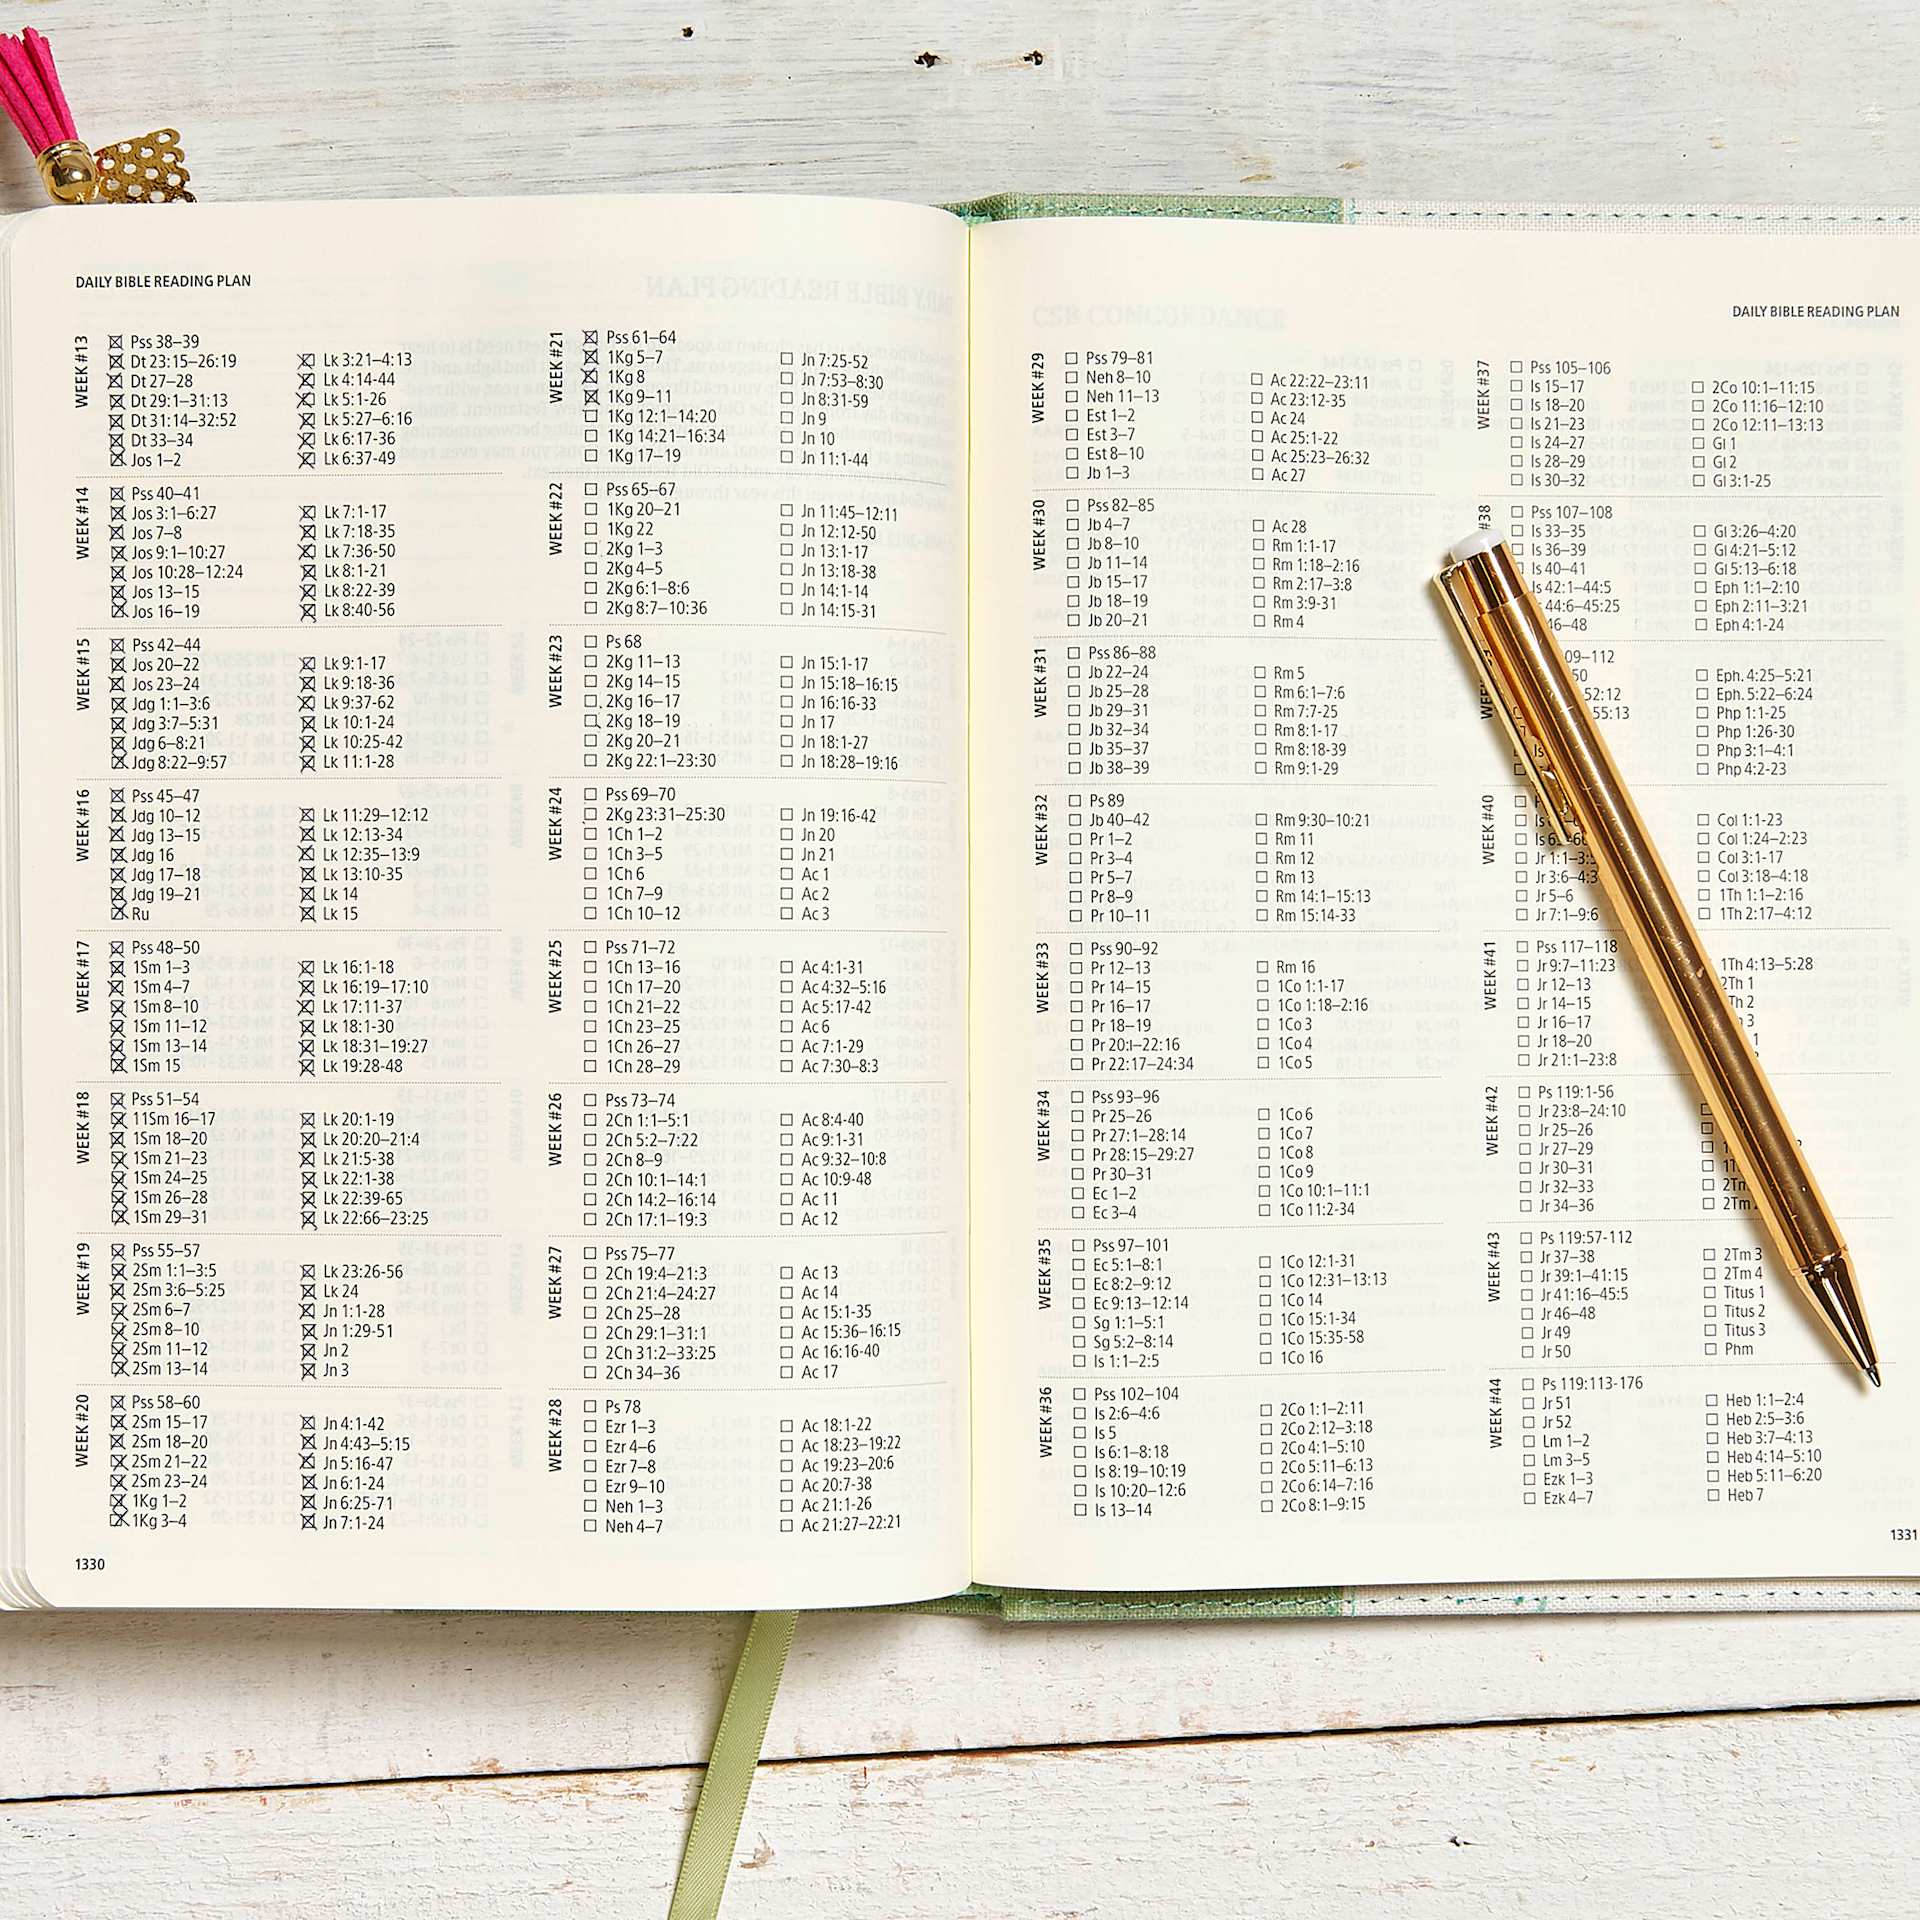 DAILY BIBLE READING PLAN
WEEK #13
Pss 38–39
Dt 23:15–26:19 Lk 3:21–4:13
Dt 27–28 Lk 4:14-44
Dt 29:1–31:13 Lk 5:1-26
Dt 31:14–32:52 Lk 5:27–6:16
Dt 33–34 Lk 6:17-36
Jos 1–2 Lk 6:37-49
WEEK #14
Pss 40–41
Jos 3:1–6:27 Lk 7:1-17
Jos 7–8 Lk 7:18-35
Jos 9:1–10:27 Lk 7:36-50
Jos 10:28–12:24 Lk 8:1-21
Jos 13–15 Lk 8:22-39
Jos 16–19 Lk 8:40-56
WEEK #15
Pss 42–44
Jos 20–22 Lk 9:1-17
Jos 23–24 Lk 9:18-36
Jdg 1:1–3:6 Lk 9:37-62
Jdg 3:7–5:31 Lk 10:1-24
Jdg 6–8:21 Lk 10:25-42
Jdg 8:22–9:57 Lk 11:1-28
WEEK #16
Pss 45–47
Jdg 10–12 Lk 11:29–12:12
Jdg 13–15 Lk 12:13-34
Jdg 16 Lk 12:35–13:9
Jdg 17–18 Lk 13:10-35
Jdg 19–21 Lk 14
Ru Lk 15
WEEK #17
Pss 48–50
1Sm 1–3 Lk 16:1-18
1Sm 4–7 Lk 16:19–17:10
1Sm 8–10 Lk 17:11-37
1Sm 11–12 Lk 18:1-30
1Sm 13–14 Lk 18:31–19:27
1Sm 15 Lk 19:28-48
WEEK #18
Pss 51–54
11Sm 16–17 Lk 20:1-19
1Sm 18–20 Lk 20:20–21:4
1Sm 21–23 Lk 21:5-38
1Sm 24–25 Lk 22:1-38
1Sm 26–28 Lk 22:39-65
1Sm 29–31 Lk 22:66–23:25
WEEK #19
Pss 55–57
2Sm 1:1–3:5 Lk 23:26-56
2Sm 3:6–5:25 Lk 24
2Sm 6–7 Jn 1:1-28
2Sm 8–10 Jn 1:29-51
2Sm 11–12 Jn 2
2Sm 13–14 Jn 3
WEEK #20
Pss 58–60
2Sm 15–17 Jn 4:1-42
2Sm 18–20 Jn 4:43–5:15
2Sm 21–22 Jn 5:16-47
2Sm 23–24 Jn 6:1-24
1Kg 1–2 Jn 6:25-71
1Kg 3–4 Jn 7:1-24
1330
WEEK #21
Pss 61–64
1Kg 5–7 Jn 7:25-52
1Kg 8 Jn 7:53–8:30
1Kg 9–11 Jn 8:31-59
1Kg 12:1–14:20 Jn 9
1Kg 14:21–16:34 Jn 10
1Kg 17–19 Jn 11:1-44
WEEK #22
Pss 65–67
1Kg 20–21 Jn 11:45–12:11
1Kg 22 Jn 12:12-50
2Kg 1–3 Jn 13:1-17
2Kg 4–5 Jn 13:18-38
2Kg 6:1–8:6 Jn 14:1-14
2Kg 8:7–10:36 Jn 14:15-31
WEEK #23
Ps 68
2Kg 11–13 Jn 15:1-17
2Kg 14–15 Jn 15:18–16:15
2Kg 16–17 Jn 16:16-33
2Kg 18–19 Jn 17
2Kg 20–21 Jn 18:1-27
2Kg 22:1–23:30 Jn 18:28–19:16
WEEK #24
Pss 69–70
2Kg 23:31–25:30 Jn 19:16-42
1Ch 1–2 Jn 20
1Ch 3–5 Jn 21
1Ch 6 Ac 1
1Ch 7–9 Ac 2
1Ch 10–12 Ac 3
WEEK #25
Pss 71–72
1Ch 13–16 Ac 4:1-31
1Ch 17–20 Ac 4:32–5:16
1Ch 21–22 Ac 5:17-42
1Ch 23–25 Ac 6
1Ch 26–27 Ac 7:1-29
1Ch 28–29 Ac 7:30–8:3
WEEK #26
Pss 73–74
2Ch 1:1–5:1 Ac 8:4-40
2Ch 5:2–7:22 Ac 9:1-31
2Ch 8–9 Ac 9:32–10:8
2Ch 10:1–14:1 Ac 10:9-48
2Ch 14:2–16:14 Ac 11
2Ch 17:1–19:3 Ac 12
WEEK #27
Pss 75–77
2Ch 19:4–21:3 Ac 13
2Ch 21:4–24:27 Ac 14
2Ch 25–28 Ac 15:1-35
2Ch 29:1–31:1 Ac 15:36–16:15
2Ch 31:2–33:25 Ac 16:16-40
2Ch 34–36 Ac 17
WEEK #28
Ps 78
Ezr 1–3 Ac 18:1-22
Ezr 4–6 Ac 18:23–19:22
Ezr 7–8 Ac 19:23–20:6
Ezr 9–10 Ac 20:7-38
Neh 1–3 Ac 21:1-26
Neh 4–7 Ac 21:27–22:21
DAILY BIBLE READING PLAN
WEEK #29
Pss 79–81
Neh 8–10 Ac 22:22–23:11
Neh 11–13 Ac 23:12-35
Est 1–2 Ac 24
Est 3–7 Ac 25:1-22
Est 8–10 Ac 25:23–26:32
Jb 1–3 Ac 27
WEEK #30
Pss 82–85
Jb 4–7 Ac 28
Jb 8–10 Rm 1:1-17
Jb 11–14 Rm 1:18–2:16
Jb 15–17 Rm 2:17–3:8
Jb 18–19 Rm 3:9-31
Jb 20–21 Rm 4
WEEK #31
Pss 86–88
Jb 22–24 Rm 5
Jb 25–28 Rm 6:1–7:6
Jb 29–31 Rm 7:7-25
Jb 32–34 Rm 8:1-17
Jb 35–37 Rm 8:18-39
Jb 38–39 Rm 9:1-29
WEEK #32
Ps 89
Jb 40–42 Rm 9:30–10:21
Pr 1–2 Rm 11
Pr 3–4 Rm 12
Pr 5–7 Rm 13
Pr 8–9 Rm 14:1–15:13
Pr 10–11 Rm 15:14-33
WEEK #33
Pss 90–92
Pr 12–13 Rm 16
Pr 14–15 1Co 1:1-17
Pr 16–17 1Co 1:18–2:16
Pr 18–19 1Co 3
Pr 20:1–22:16 1Co 4
Pr 22:17–24:34 1Co 5
WEEK #34
Pss 93–96
Pr 25–26 1Co 6
Pr 27:1–28:14 1Co 7
Pr 28:15–29:27 1Co 8
Pr 30–31 1Co 9
Ec 1–2 1Co 10:1–11:1
Ec 3–4 1Co 11:2-34
WEEK #35
Pss 97–101
Ec 5:1–8:1 1Co 12:1-31
Ec 8:2–9:12 1Co 12:31–13:13
Ec 9:13–12:14 1Co 14
Sg 1:1–5:1 1Co 15:1-34
Sg 5:2–8:14 1Co 15:35-58
Is 1:1–2:5 1Co 16
WEEK #36
Pss 102–104
Is 2:6–4:6 2Co 1:1–2:11
Is 5 2Co 2:12–3:18
Is 6:1–8:18 2Co 4:1–5:10
Is 8:19–10:19 2Co 5:11–6:13
Is 10:20–12:6 2Co 6:14–7:16
Is 13–14 2Co 8:1–9:15
WEEK #37
Pss 105–106
Is 15–17 2Co 10:1–11:15
Is 18–20 2Co 11:16–12:10
Is 21–23 2Co 12:11–13:13
Is 24–27 Gl 1
Is 28–29 Gl 2
Is 30–32 Gl 3:1-25
#38
Pss 107–108
Is 33–35 Gl 3:26–4:20
Is 36–39 Gl 4:21–5:12
Is 40–41 Gl 5:13–6:18
Is 42:1–44:5 Eph 1:1–2:10
44:6–45:25 Eph 2:11–3:21
46–48 Eph 4:1-24
09–112
50 Eph. 4:25–5:21
52:12 Eph. 5:22–6:24
55:13 Php 1:1-25
Php 1:26-30
Is Php 3:1–4:1
Php 4:2-23
WEEK #40
Is Col 1:1-23
Is Col 1:24–2:23
Jr 1:1–3: Col 3:1-17
Jr 3:6–4:3 Col 3:18–4:18
Jr 5–6 1Th 1:1–2:16
Jr 7:1–9:6 1Th 2:17–4:12
WEEK #41
Pss 117–118
Jr 9:7–11:23 1Th 4:13–5:28
Jr 12–13 2Th 1
Jr 14–15 Th 2
Jr 16–17 3
Jr 18–20 1
Jr 21:1–23:8
WEEK #42
Ps 119:1-56
Jr 23:8–24:10
Jr 25–26
Jr 27–29
Jr 30–31
Jr 32–33 2Tm
Jr 34–36 2Tm
WEEK #43
Ps 119:57-112
Jr 37–38 2Tm 3
Jr 39:1–41:15 2Tm 4
Jr 41:16–45:5 Titus 1
Jr 46–48 Titus 2
Jr 49 Titus 3
Jr 50 Phm
WEEK #44
Ps 119:113-176
Jr 51 Heb 1:1–2:4
Jr 52 Heb 2:5–3:6
Lm 1–2 Heb 3:7–4:13
Lm 3–5 Heb 4:14–5:10
Ezk 1–3 Heb 5:11–6:20
Ezk 4–7 Heb 7
1331